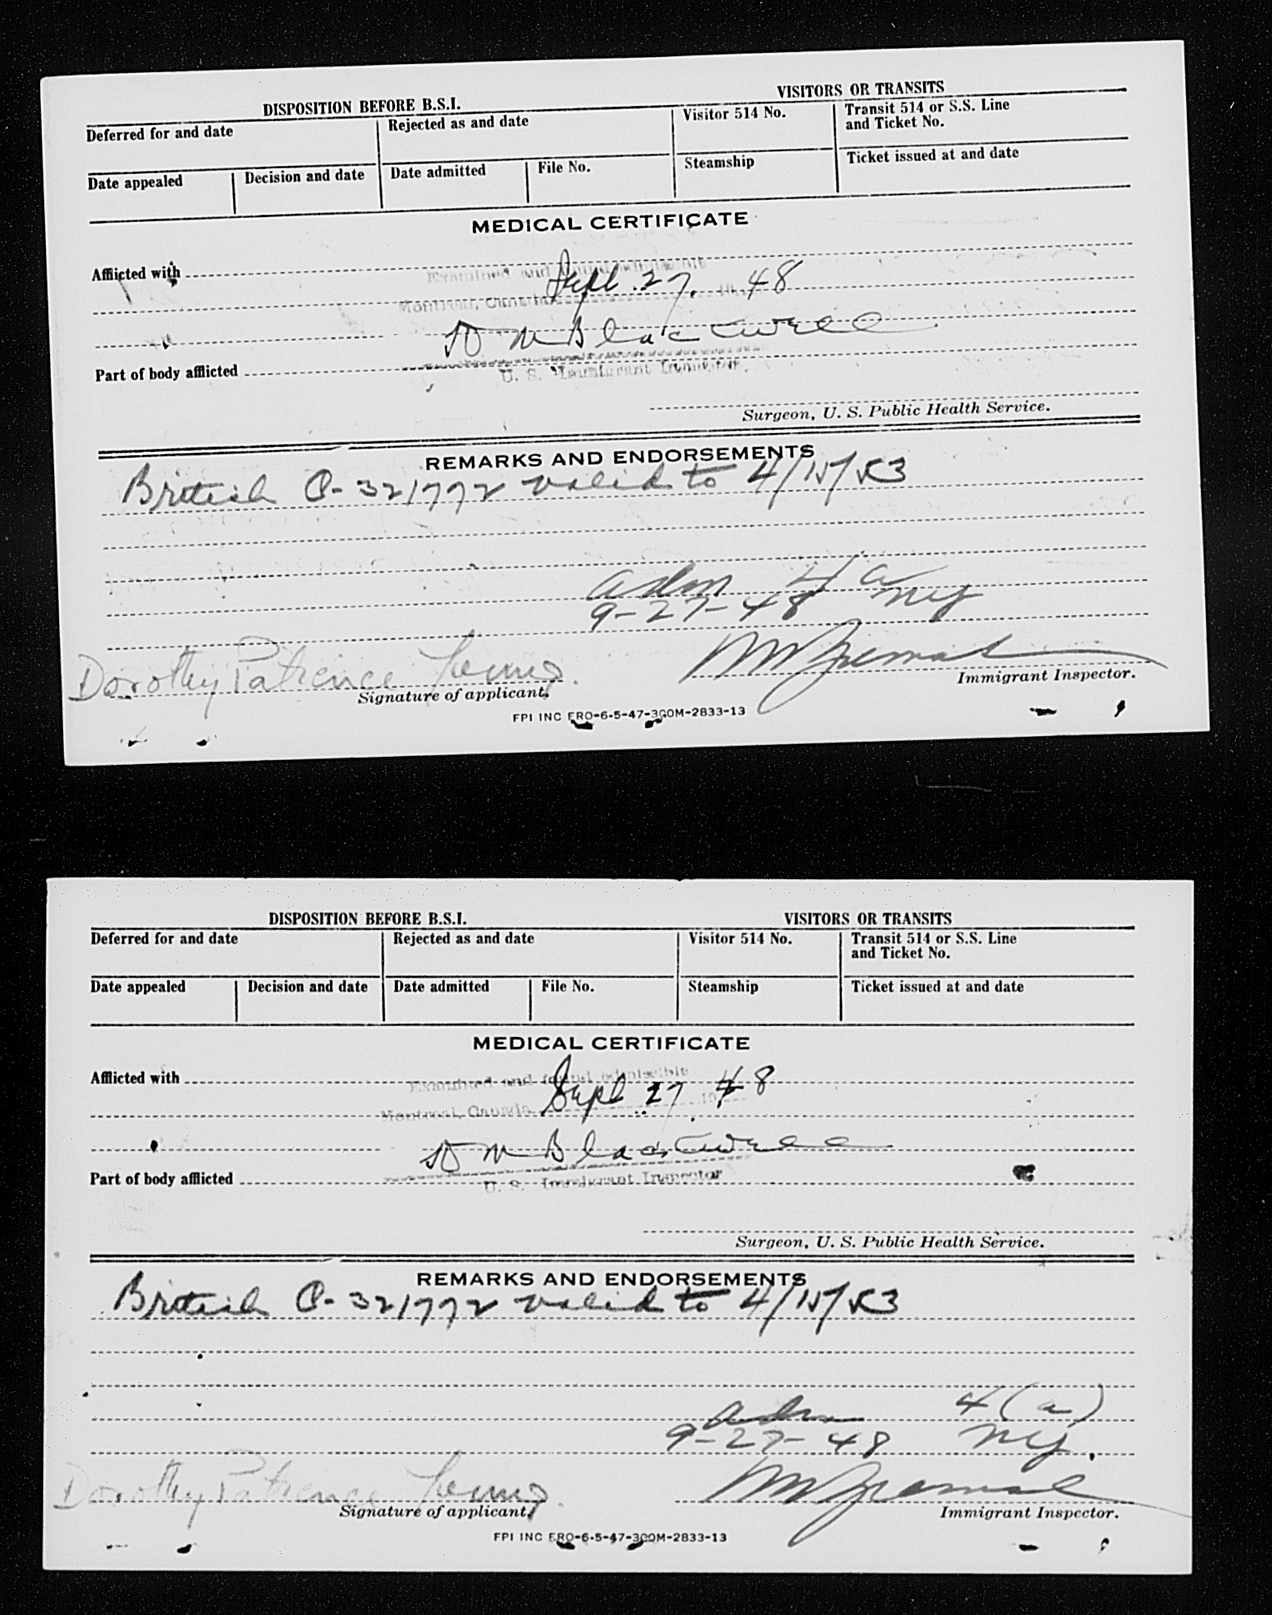 DISPOSITION BEFORE B.S.I. VISITORS OR TRANSITS
Deferred for and date Rejected as and date Visitor 514 No. Transit 514 or S.S. Line
and Ticket No.
Date appealed Decision and date Date admitted File No. Steamship Ticket issued at and date
MEDICAL CERTIFICATE
Afflicted with
Examined and found admissible
Sept 27, 48
Montreal, Canada 19
D M Blackwell
Part of body afflicted
U. S. Immigrant Inspector
Surgeon, U. S. Public Health Service.
REMARKS AND ENDORSEMENTS
British P-321772 valid to 4/15/53
adm 4 a
9-27-48 NY
Dorothy Patience
Signature of applicant. Immigrant Inspector.
FPI INC FRO-6-5-47-300M-2833-13
DISPOSITION BEFORE B.S.I. VISITORS OR TRANSITS
Deferred for and date Rejected as and date Visitor 514 No. Transit 514 or S.S. Line
and Ticket No.
Date appealed Decision and date Date admitted File No. Steamship Ticket issued at and date
MEDICAL CERTIFICATE
Afflicted with
Examined and found admissible
Sept 27, 48
Montreal, Canada 19
D M Blackwell
Part of body afflicted
U. S. Immigrant Inspector
Surgeon, U. S. Public Health Service.
REMARKS AND ENDORSEMENTS
British P-321772 valid to 4/15/53
adm 4(a)
9-27-48 NY.
Dorothy Patience
Signature of applicant. Immigrant Inspector.
FPI INC FRO-6-5-47-300M-2833-13